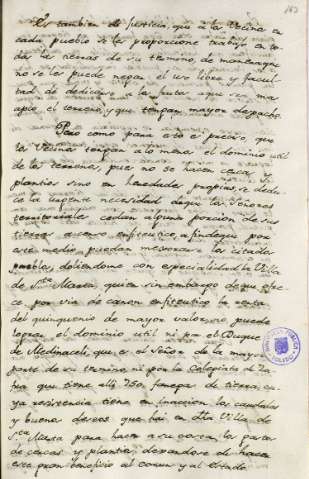 167
Es tambien de justicia, que a los Vecinos en
cada pueblo se les proporcione trabajo en to-
das las tierras de su termino, de manera que
no se les puede negar el uso libre y facul-
tad de dedicarse a los frutos que sea mas
apto el terreno, y que tengan mayor despacho.
Pero como para esto es preciso, que
los Vecinos tengan a lo menos el dominio util
de los terrenos, pues no se hacen cercas y
plantios sino en heredades propias, se dedu-
ce la urgente necesidad de que los Señores
territoriales cedan alguna porcion de sus
tierras a censo enfiteutico, a fin de que por
este medio puedan mejorarse los citados
pueblos, doliendome con especialidad la Villa
de Sta Maria, quien sin embargo de que ofre-
ce por via de canon enfiteutico la renta
del quinquenio de mayor valor, no puede
lograr el dominio util ni por el Duque
de Medinaceli, que es el Señor de la mayor
parte de su termino, ni por la Colegiata de
que tiene alli 250 fanegas de tierra, cu-
ya resistencia tiene en inaccion los caudales
y buenos deseos que hai en dha Villa de
Sta Maria para hacer a su costa los gastos
de cercas y plantios, dexandose de hacer
este gran beneficio al comun y al estado.
TOLEDO